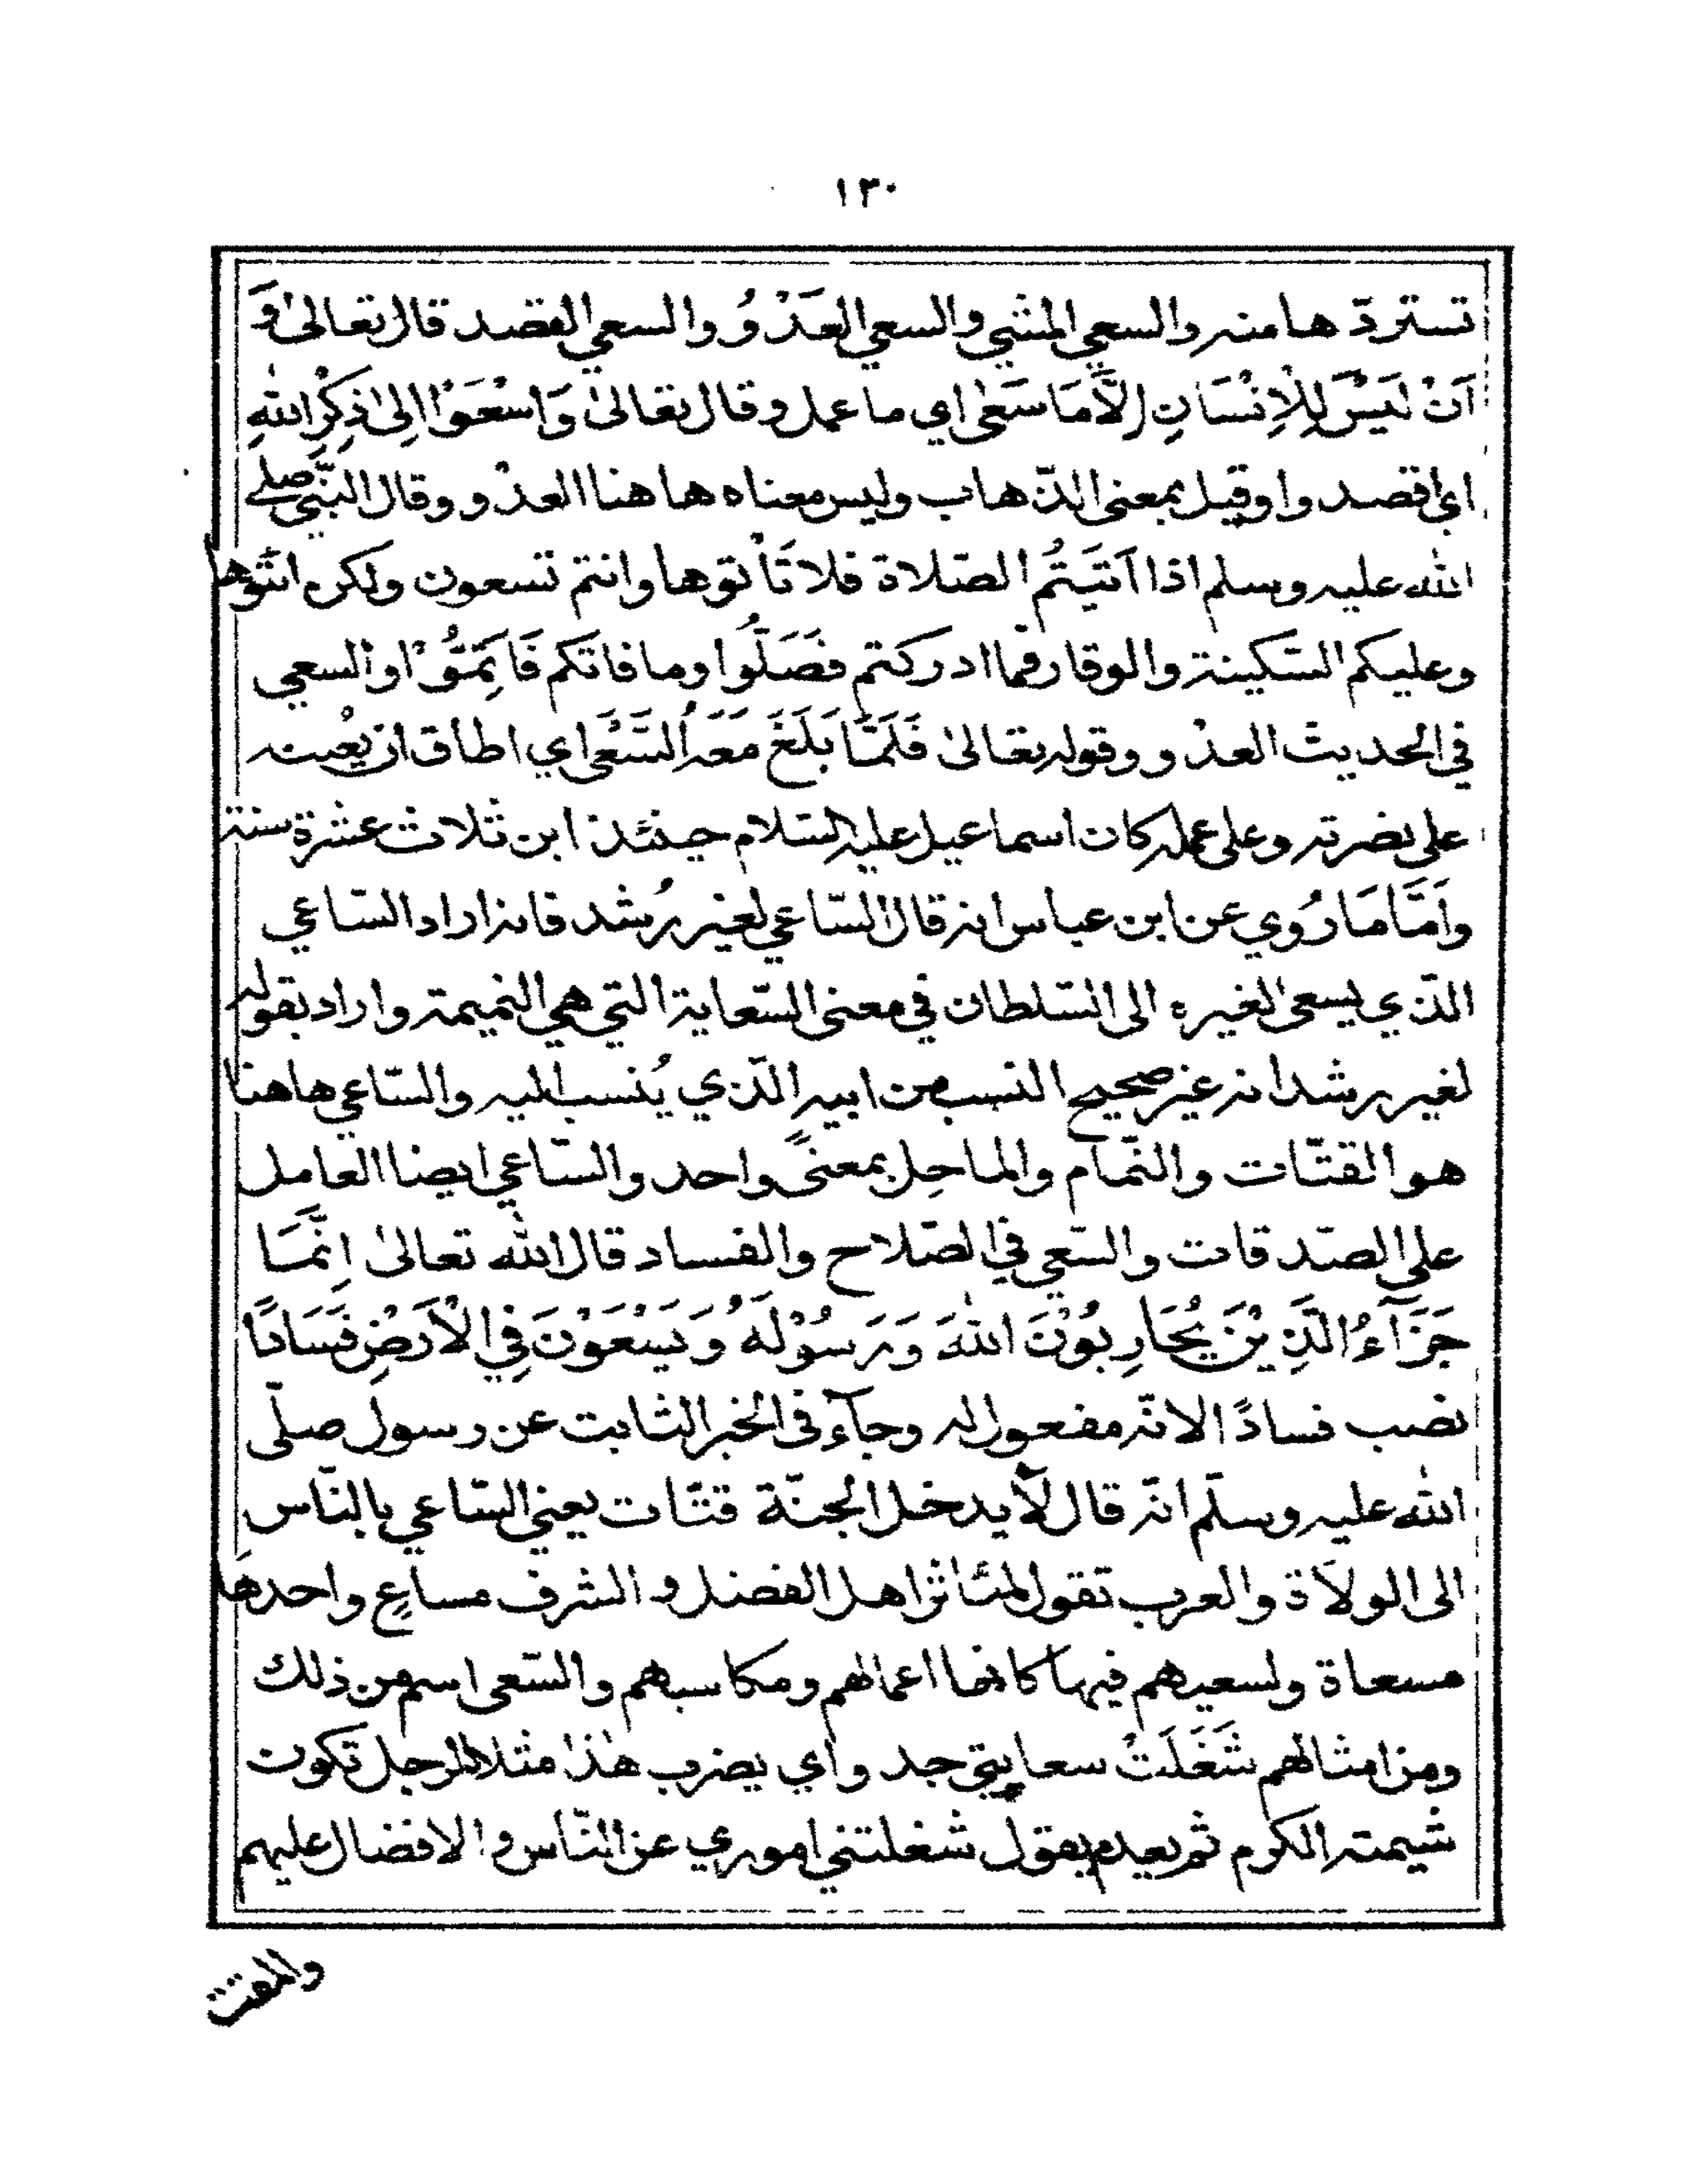 ١٣٠
تستردّها منه والسعي المشي والسعي العَدْوُ والسعي القصد قال تعالىٰ وَ
اَنْ لَيْسَ لِلْاِنْسَانِ اِلَّا مَا سَعٰى اي ما عمل وقال تعالىٰ وَاسْعَوْا اِلىٰ ذِكْرِ اللّٰهِ
اي اقصدوا وقيل بمعنى الذّهاب وليس معناه هاهنا العدْو وقال النّبي صلى
اللّٰه عليه وسلم اذا اَتَيتُم الصّلاة فلا تَأْتوها وانتم تسعون ولكن ائتوها
وعليكم السّكينة والوقار فما ادركتم فصَلُّوا وما فاتكم فَاَتِمُّوْا والسعي
في الحديث العدْو وقوله تعالىٰ فَلَمَّا بَلَغَ مَعَهُ السَّعْىَ اي اطاق ان يُعينه
على نصرته وعلى عمله كان اسماعيل عليه السّلام حينئذ ابن ثلاث عشرة سنة
وأمّا مَا رُوي عن ابن عباس انه قال السّاعي لغير رُشد فانه اراد السّاعي
الذّي يسعى لغيره الى السّلطان في معنى السّعاية التي هي النميمة واراد بقوله
لغير رشد انه غير صحيح النسب من ابيه الذّي يُنسب اليه والسّاعي هاهنا
هو القتّات والنّمام والماحِل بمعنىً واحد والسّاعي ايضا العامل
على الصّدقات والسّعي في الصّلاح والفساد قال اللّٰه تعالىٰ اِنَّمَا
جَزَآءُ الَّذِيْنَ يُحَارِبُوْنَ اللّٰهَ وَرَسُوْلَهُ وَيَسْعَوْنَ فِي الْاَرْضِ فَسَادًا
نصب فسادًا لانّه مفعول له وجآء فى الخبر الثابت عن رسول صلّى
اللّٰه عليه وسلّم انّه قال لا يدخل الجنّة قتّات يعني السّاعي بالنّاس
الى الولاة والعرب تقول لمئاثر اهل الفضل و الشرف مساعٍ واحدها
مسعاة ولسعيهم فيها كانها اعمالهم ومكاسبهم والسّعى اسم من ذلك
ومن امثالهم شَغَلَتْ سعايتي جدواي يضرب هٰذا مثلا للرجل تكون
شيمته الكرم ثم يعدم يقول شغلتني اموري عن النّاس والافضال عليهم